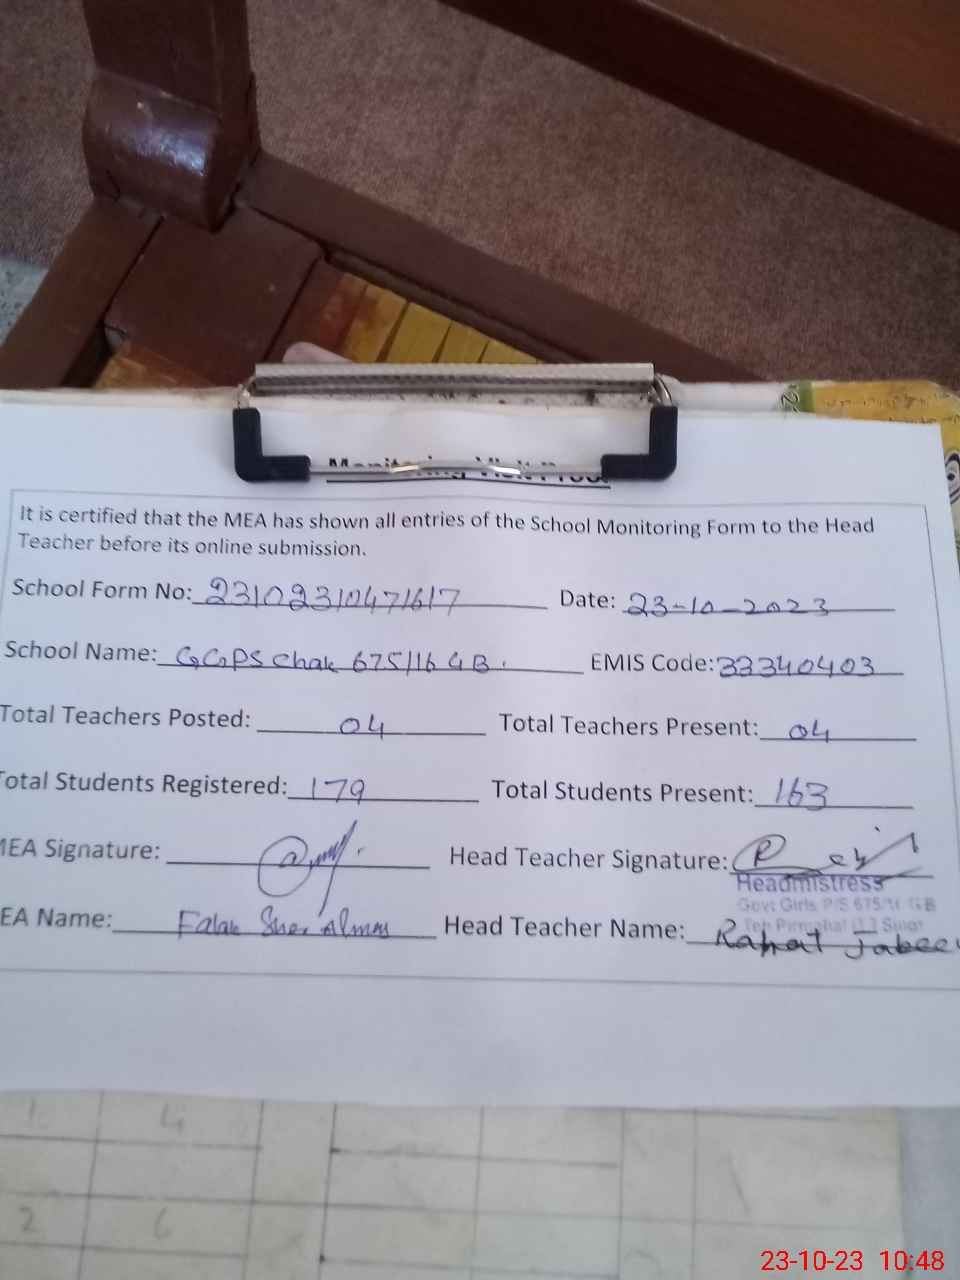 Monitoring Visit Proof
It is certified that the MEA has shown all entries of the School Monitoring Form to the Head
Teacher before its online submission.
School Form No: 23102310471617 Date: 23-10-2023
School Name: GGPS Chak 675/16 GB. EMIS Code: 33340403
Total Teachers Posted: 04 Total Teachers Present: 04
Total Students Registered: 179 Total Students Present: 163
MEA Signature: Head Teacher Signature:
Headmistress
Govt Girls P/S 675/16 GB
Teh Pirmahal
EA Name: Falak Sher Head Teacher Name: Rahat Jabee
1 4
2 6
23-10-23 10:48